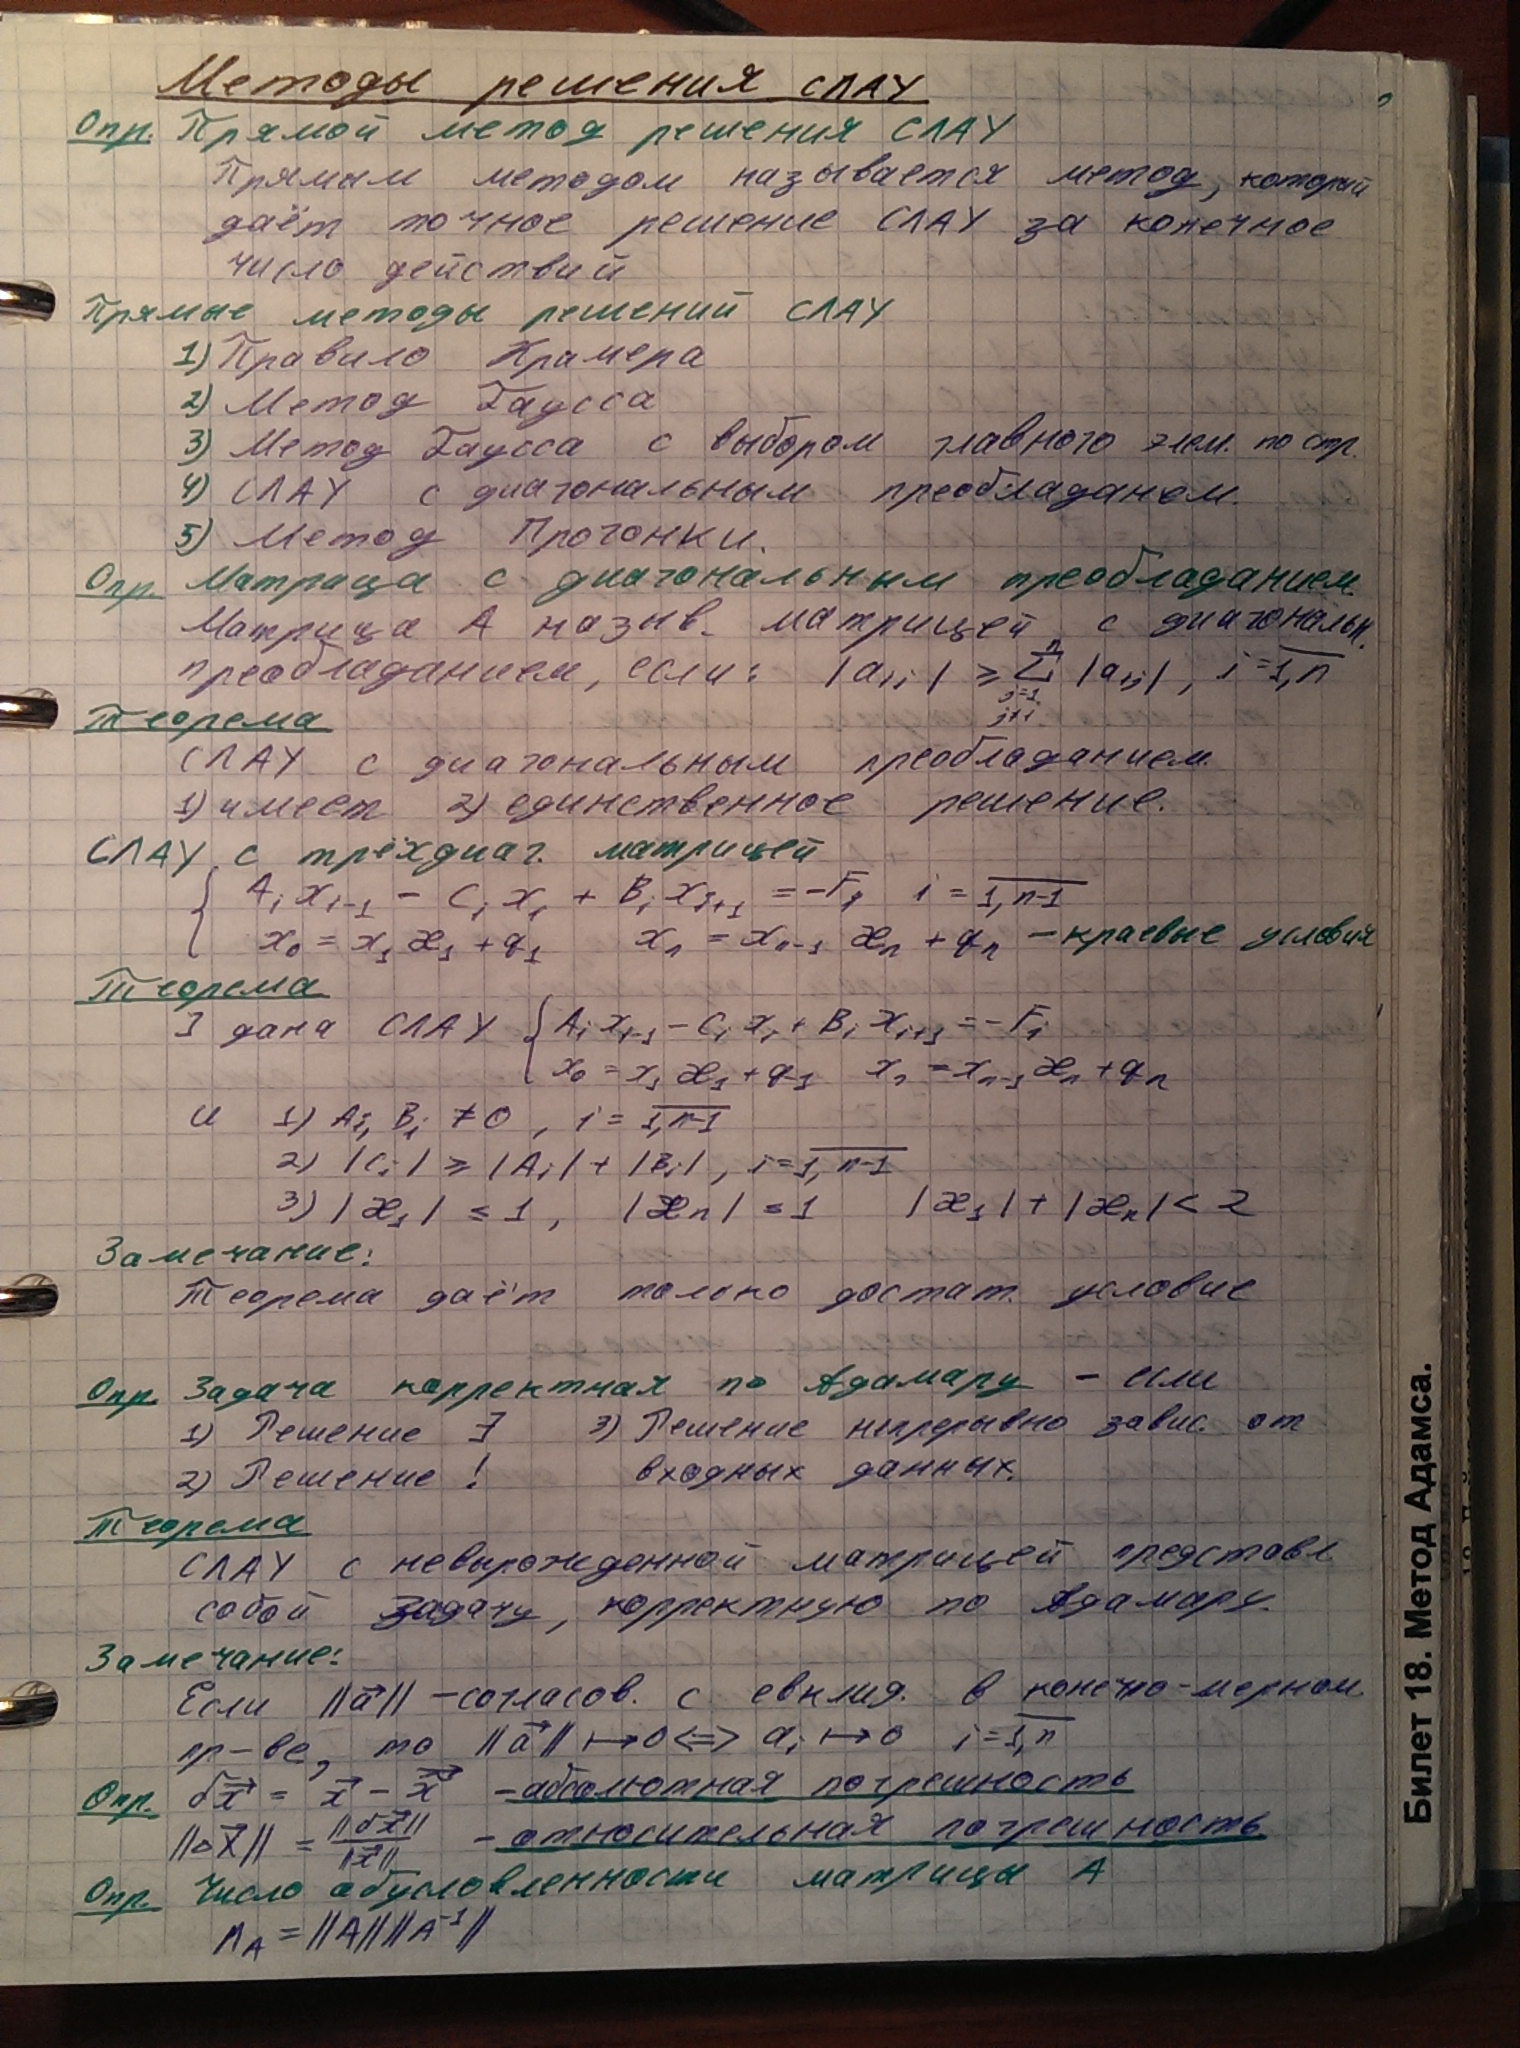 Методы решения СЛАУ
Опр. Прямой метод решения СЛАУ
Прямым методом называется метод, который
даёт точное решение СЛАУ за конечное
число действий
Прямые методы решений СЛАУ
1) Правило Крамера
2) Метод Гаусса
3) Метод Гаусса с выбором главного элем. по стр.
4) СЛАУ с диагональным преобладанем.
5) Метод Прогонки.
Опр. Матраца с диагональным преобладанием.
Матрица A назыв. матрицей с диагональн.
преобладанием, если: |aᵢᵢ| ⩾ ∑ⁿ_{j=1, j≠i} |aᵢⱼ|, i = \overline{1,n}
Теорема
СЛАУ с диагональным преобладанием.
1) имеет 2) единственное решение.
СЛАУ с трёхдиаг. матрицей
{ Aᵢ xᵢ₋₁ − Cᵢ xᵢ + Bᵢ xᵢ₊₁ = −Fᵢ i = \overline{1,n-1}
x₀ = x₁ æ₁ + q₁ xₙ = xₙ₋₁ æₙ + qₙ – краевые условия
Теорема
] дана СЛАУ { Aᵢ xᵢ₋₁ − Cᵢ xᵢ + Bᵢ xᵢ₊₁ = −Fᵢ
x₀ = x₁ æ₁ + q₁ xₙ = xₙ₋₁ æₙ + qₙ
И 1) Aᵢ, Bᵢ ≠ 0, i = \overline{1,n-1}
2) |Cᵢ| ⩾ |Aᵢ| + |Bᵢ|, i = \overline{1,n-1}
3) |æ₁| ≤ 1, |æₙ| ≤ 1 |æ₁| + |æₙ| < 2
Замечание:
Теорема даёт только достат. условие
Опр. Задача корректная по Адамару – если
1) Решение ∃ 3) Решение непрерывно завис. от
2) Решение ! входных данных.
Теорема
СЛАУ с невырожденной матрицей представл
собой задачу, корректную по Адамару.
Замечание:
Если ||a⃗|| – согласов. с евклид. в конечно-мерном
пр-ве, то ||a⃗|| ↦ 0 <=> aᵢ ↦ 0 i = \overline{1,n}
Опр. δx⃗ = x⃗ − x⃗ – абсолютная погрешность
||δx⃗|| = ||δx⃗|| / ||x⃗|| – относительная погрешность
Опр. Число обусловленности матрицы A
A = ||A|| ||A⁻¹||
Билет 18. Метод Адамса.